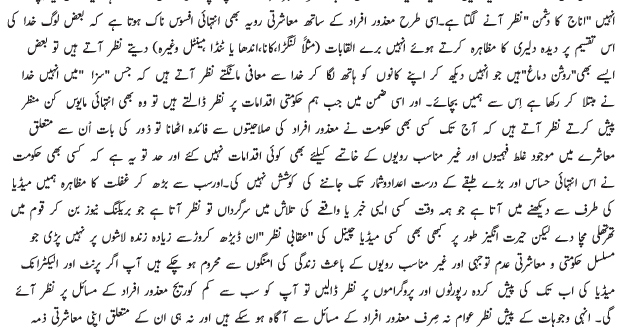 انہیں "اناج کا دشمن "نظر آنے لگتا ہے۔اسی طرح معذور افراد کے ساتھ معاشرتی رویہ بھی انتہائی افسوس ناک ہوتا ہے کہ بعض لوگ خدا کی
اس تقسیم پر دیدہ دلیری کا مظاہرہ کرتے ہوئے انہیں برے القابات (مثلاً لنگڑا،کانا،اندھا یا ٹنڈا مینٹل وغیرہ) دیتے نظر آتے ہیں تو بعض
ایسے بھی"روشن دماغ"ہیں جو انہیں دیکھ کر اپنے کانوں کو ہاتھ لگا کر خدا سے معافی مانگتے نظر آتے ہیں کہ جس "سزا "میں انہیں خدا
نے مبتلا کر رکھا ہے اِس سے ہمیں بچائے۔ اور اسی ضمن میں جب ہم حکومتی اقدامات پر نظر ڈالتے ہیں تو وہ بھی انتہائی مایوس کن منظر
پیش کرتے نظر آتے ہیں کہ آج تک کسی بھی حکومت نے معذور افراد کی صلاحیتوں سے فائدہ اٹھانا تو دُور کی بات اُن سے متعلق
معاشرے میں موجود غلط فہمیوں اور غیر مناسب رویوں کے خاتمے کیلئے بھی کوئی اقدامات نہیں کئے اور حد تو یہ ہے کہ کسی بھی حکومت
نے اس انتہائی حساس اور بڑے طبقے کے درست اعدادوشمار تک جاننے کی کوشش نہیں کی۔اورسب سے بڑھ کر غفلت کا مظاہرہ ہمیں میڈیا
کی طرف سے دیکھنے میں آتا ہے جو ہمہ وقت کسی ایسی خبر یا واقعے کی تلاش میں سرگرداں تو نظر آتا ہے جو بریکنگ نیوز بن کر قوم میں
تھرتھلی مچا دے لیکن حیرت انگیز طور پر کبھی بھی کسی میڈیا چینل کی "عقابی نظر "ان ڈیڑھ کروڑسے زیادہ زندہ لاشوں پر نہیں پڑی جو
مسلسل حکومتی و معاشرتی عدم توجہی اور غیر مناسب رویوں کے باعث زندگی کی امنگوں سے محروم ہو چکے ہیں آپ اگر پرنٹ اور الیکٹرانک
میڈیا کی اب تک کی پیش کردہ رپورٹوں اور پروگراموں پر نظر ڈالیں تو آپ کو سب سے کم کوریج معذور افراد کے مسائل پر نظر آئے
گی۔ انہی وجوہات کے پیش نظر عوام نہ صِرف معذور افراد کے مسائل سے آگاہ ہو سکے ہیں اور نہ ہی ان کے متعلق اپنی معاشرتی ذمہ